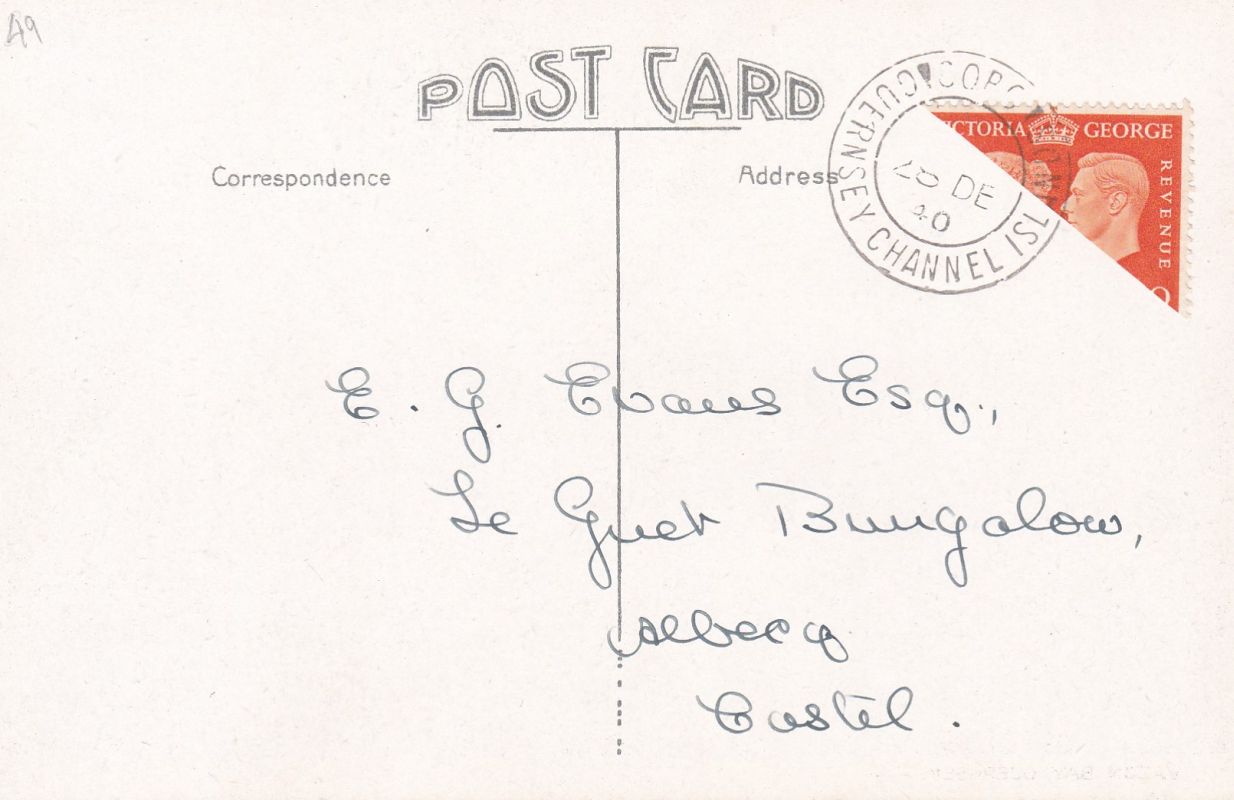 49
POST CARD
Correspondence
Address
GUERNSEY CHANNEL ISL
28 DE
40
VICTORIA GEORGE
REVENUE
E. G. Evans Esq.,
Le Guet Bungalow,
Albecq
Castel.
VAZON BAY GUERNSEY